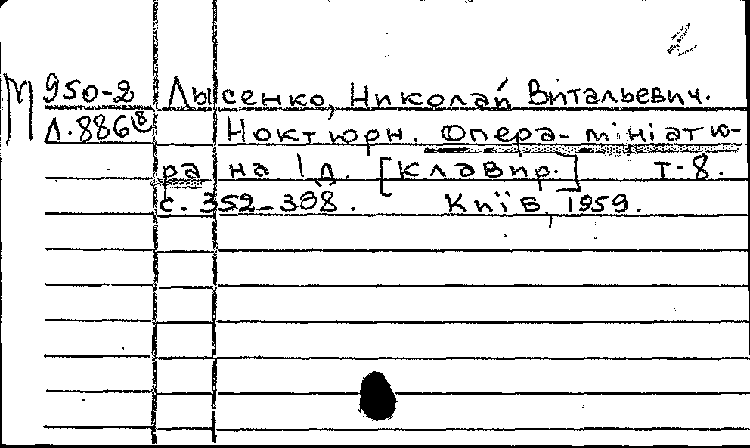 2
М 950-2 Лысенко, Николай Витальевич.
Л.886⑧ Ноктюрн. Опера-мініатю-
ра на 1 д. [Клавир.] Т-8.
с. 352-398. Київ, 1959.